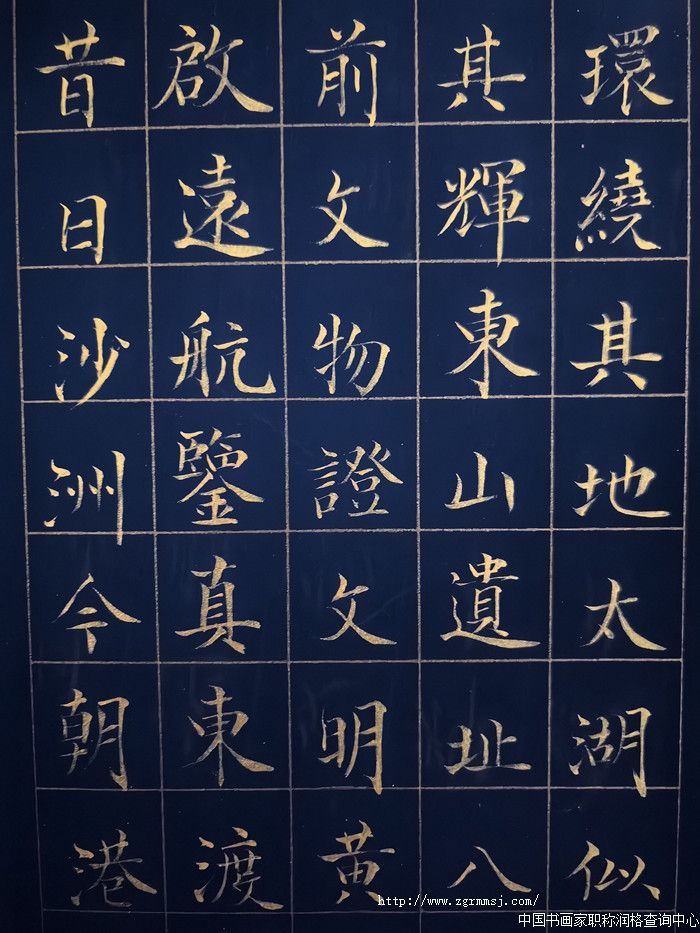 環繞其地太湖似
其輝東山遺址八
前文物證文明黄
啟遠航鑒真東渡
昔日沙洲今朝港
http://www.zgrmmsj.com/
中国书画家职称润格查询中心